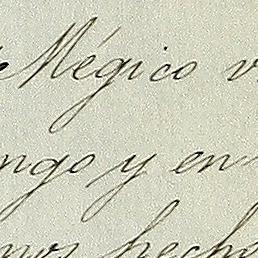 Mégico v
ngo y en
nos hecho